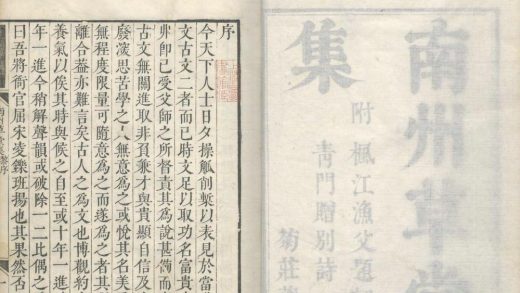 南州草堂
集
附楓江漁父題
青門贈別詩
菊莊
序
今天下人士日夕操觚削槧以表見於當
文古文二者而已時文足以取功名富貴
弗師已受父師之所督責其為說甚備而
古文無關進取非負兼才與貴顯自信及
廢滾思苦學之人無意為之或悅其名美
無程度限量可隨意為之而遂為之者其
離合葢亦難言矣古人之為文也博觀約
養氣以俟其時與候之自至或十年一進
年一進今稍解聲韻或破除一二比偶之
曰吾將衙官屈宋凌鑠班揚也其果然否